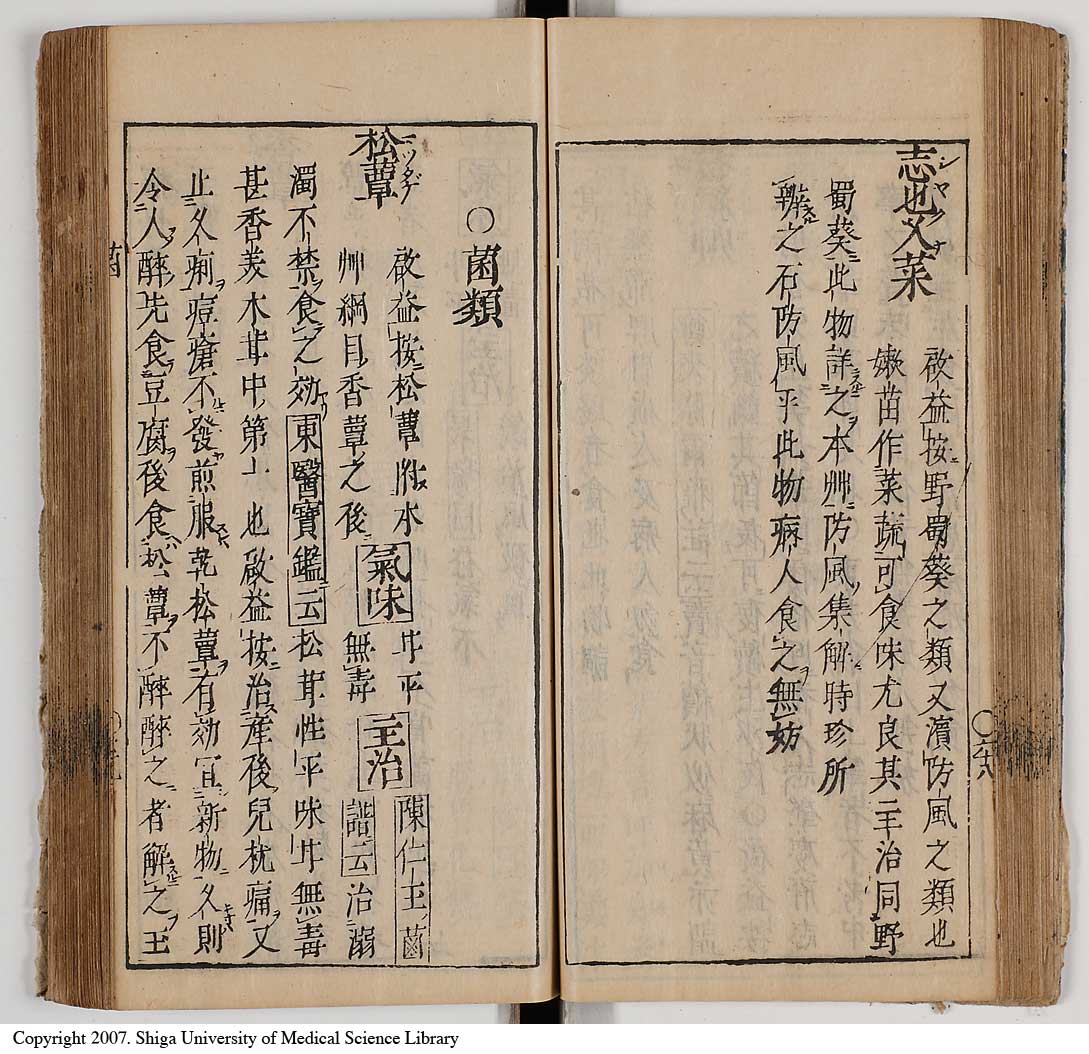 志也久菜
シヤクナ
啟益按野蜀葵之類又濱防風之類也
嫩苗作菜蔬可食味尤良其主治同野
蜀葵此物詳之本艸防風集解時珍所
辨之石防風乎此物病人食之無妨
○菌類
松蕈
マツタケ
啟益按松蕈附水
艸綱目香蕈之後
氣味
甘平
無毒
主治
陳仁玉菌
譜云治溺
濁不禁食之効東醫寶鑑云松茸性平味甘無毒
甚香美木茸中第一也啟益按治產後兒枕痛又
止久痢瘧瘡不發煎服乾松蕈有効宜新物久則
令人醉先食豆腐後食松蕈不醉醉之者解之主
菌
Copyright 2007. Shiga University of Medical Science Library